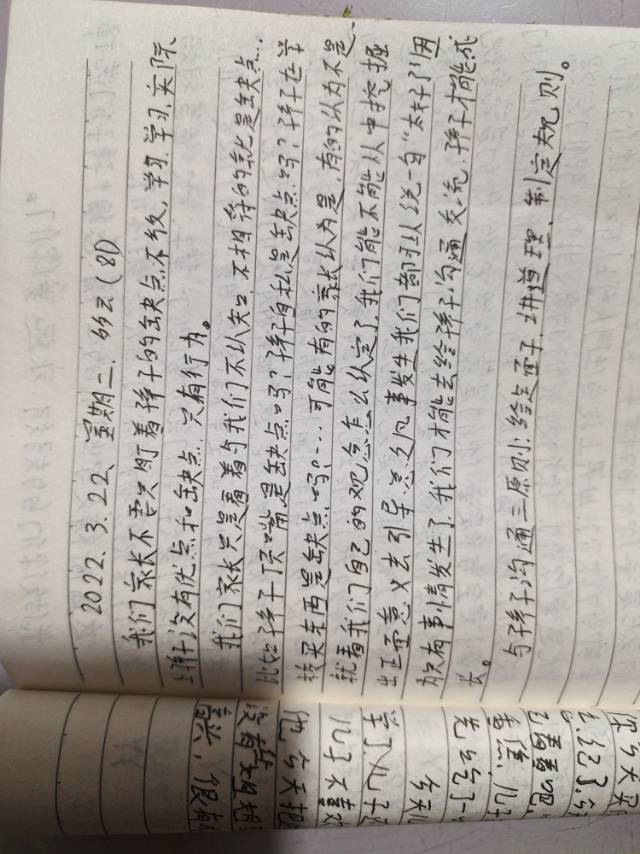 2022.3.22、星期二、多云(81)
我们家长不要只盯着孩子的缺点不放,学习、学习,实际
上孩子没有优点和缺点,只有行为。
我们家长只是看着与我们不认知、不相符的就是缺点…
比如孩子顶嘴是缺点吗?孩子自私是缺点吗?孩子在学
校买东西是缺点吗?……可能有的家长认为是,有的认为不是,
就看我们自己的观念怎么认定了,我们能不能从中挖掘
出正面意义去引导,总之凡事发生我们都可以说一句“太好了”,因
为有事情发生了,我们才能去给孩子沟通交流,孩子才能成
长。
与孩子沟通三原则:给足面子、讲道理、制定规则。